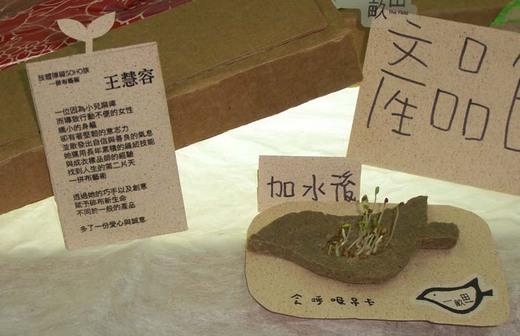 肢體障礙SOHO族
一拼布藝術
王慧容
一位因為小兒麻痺
而導致行動不便的女性
嬌小的身軀
卻有著堅韌的意志力
並散發出自信與善良的氣息
她運用長年累積的縫紉技能
與成衣樣品師的經驗
找到人生的第二片天
一拼布藝術
透過她的巧手以及創意
賦予碎布新生命
不同於一般的產品
多了一份愛心與誠意
畝田
文口
產品
加水後
會呼吸吊卡
一畝田